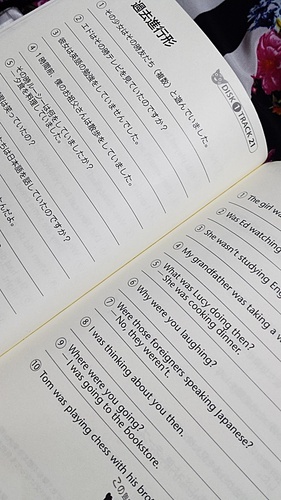 過去進行形
DISK 1 TRACK 21
① その少女はその時友だち（複数）と遊んでいました。
② エドはその時テレビを見ていたのですか？
③ 彼女は英語の勉強をしていませんでした。
④ 1時間前、僕のお祖父さんは散歩をしていました。
⑤ その時ルーシーは何をしていましたか？
－夕食を料理していました。
は笑っていたの？
たちは日本語を話していたのですか？
① The girl wa
② Was Ed watching
③ She wasn't studying Eng
④ My grandfather was taking a w
⑤ What was Lucy doing then?
－She was cooking dinner.
⑥ Why were you laughing?
⑦ Were those foreigners speaking Japanese?
－No, they weren't.
⑧ I was thinking about you then.
⑨ Where were you going?
－I was going to the bookstore.
⑩ Tom was playing chess with his bro